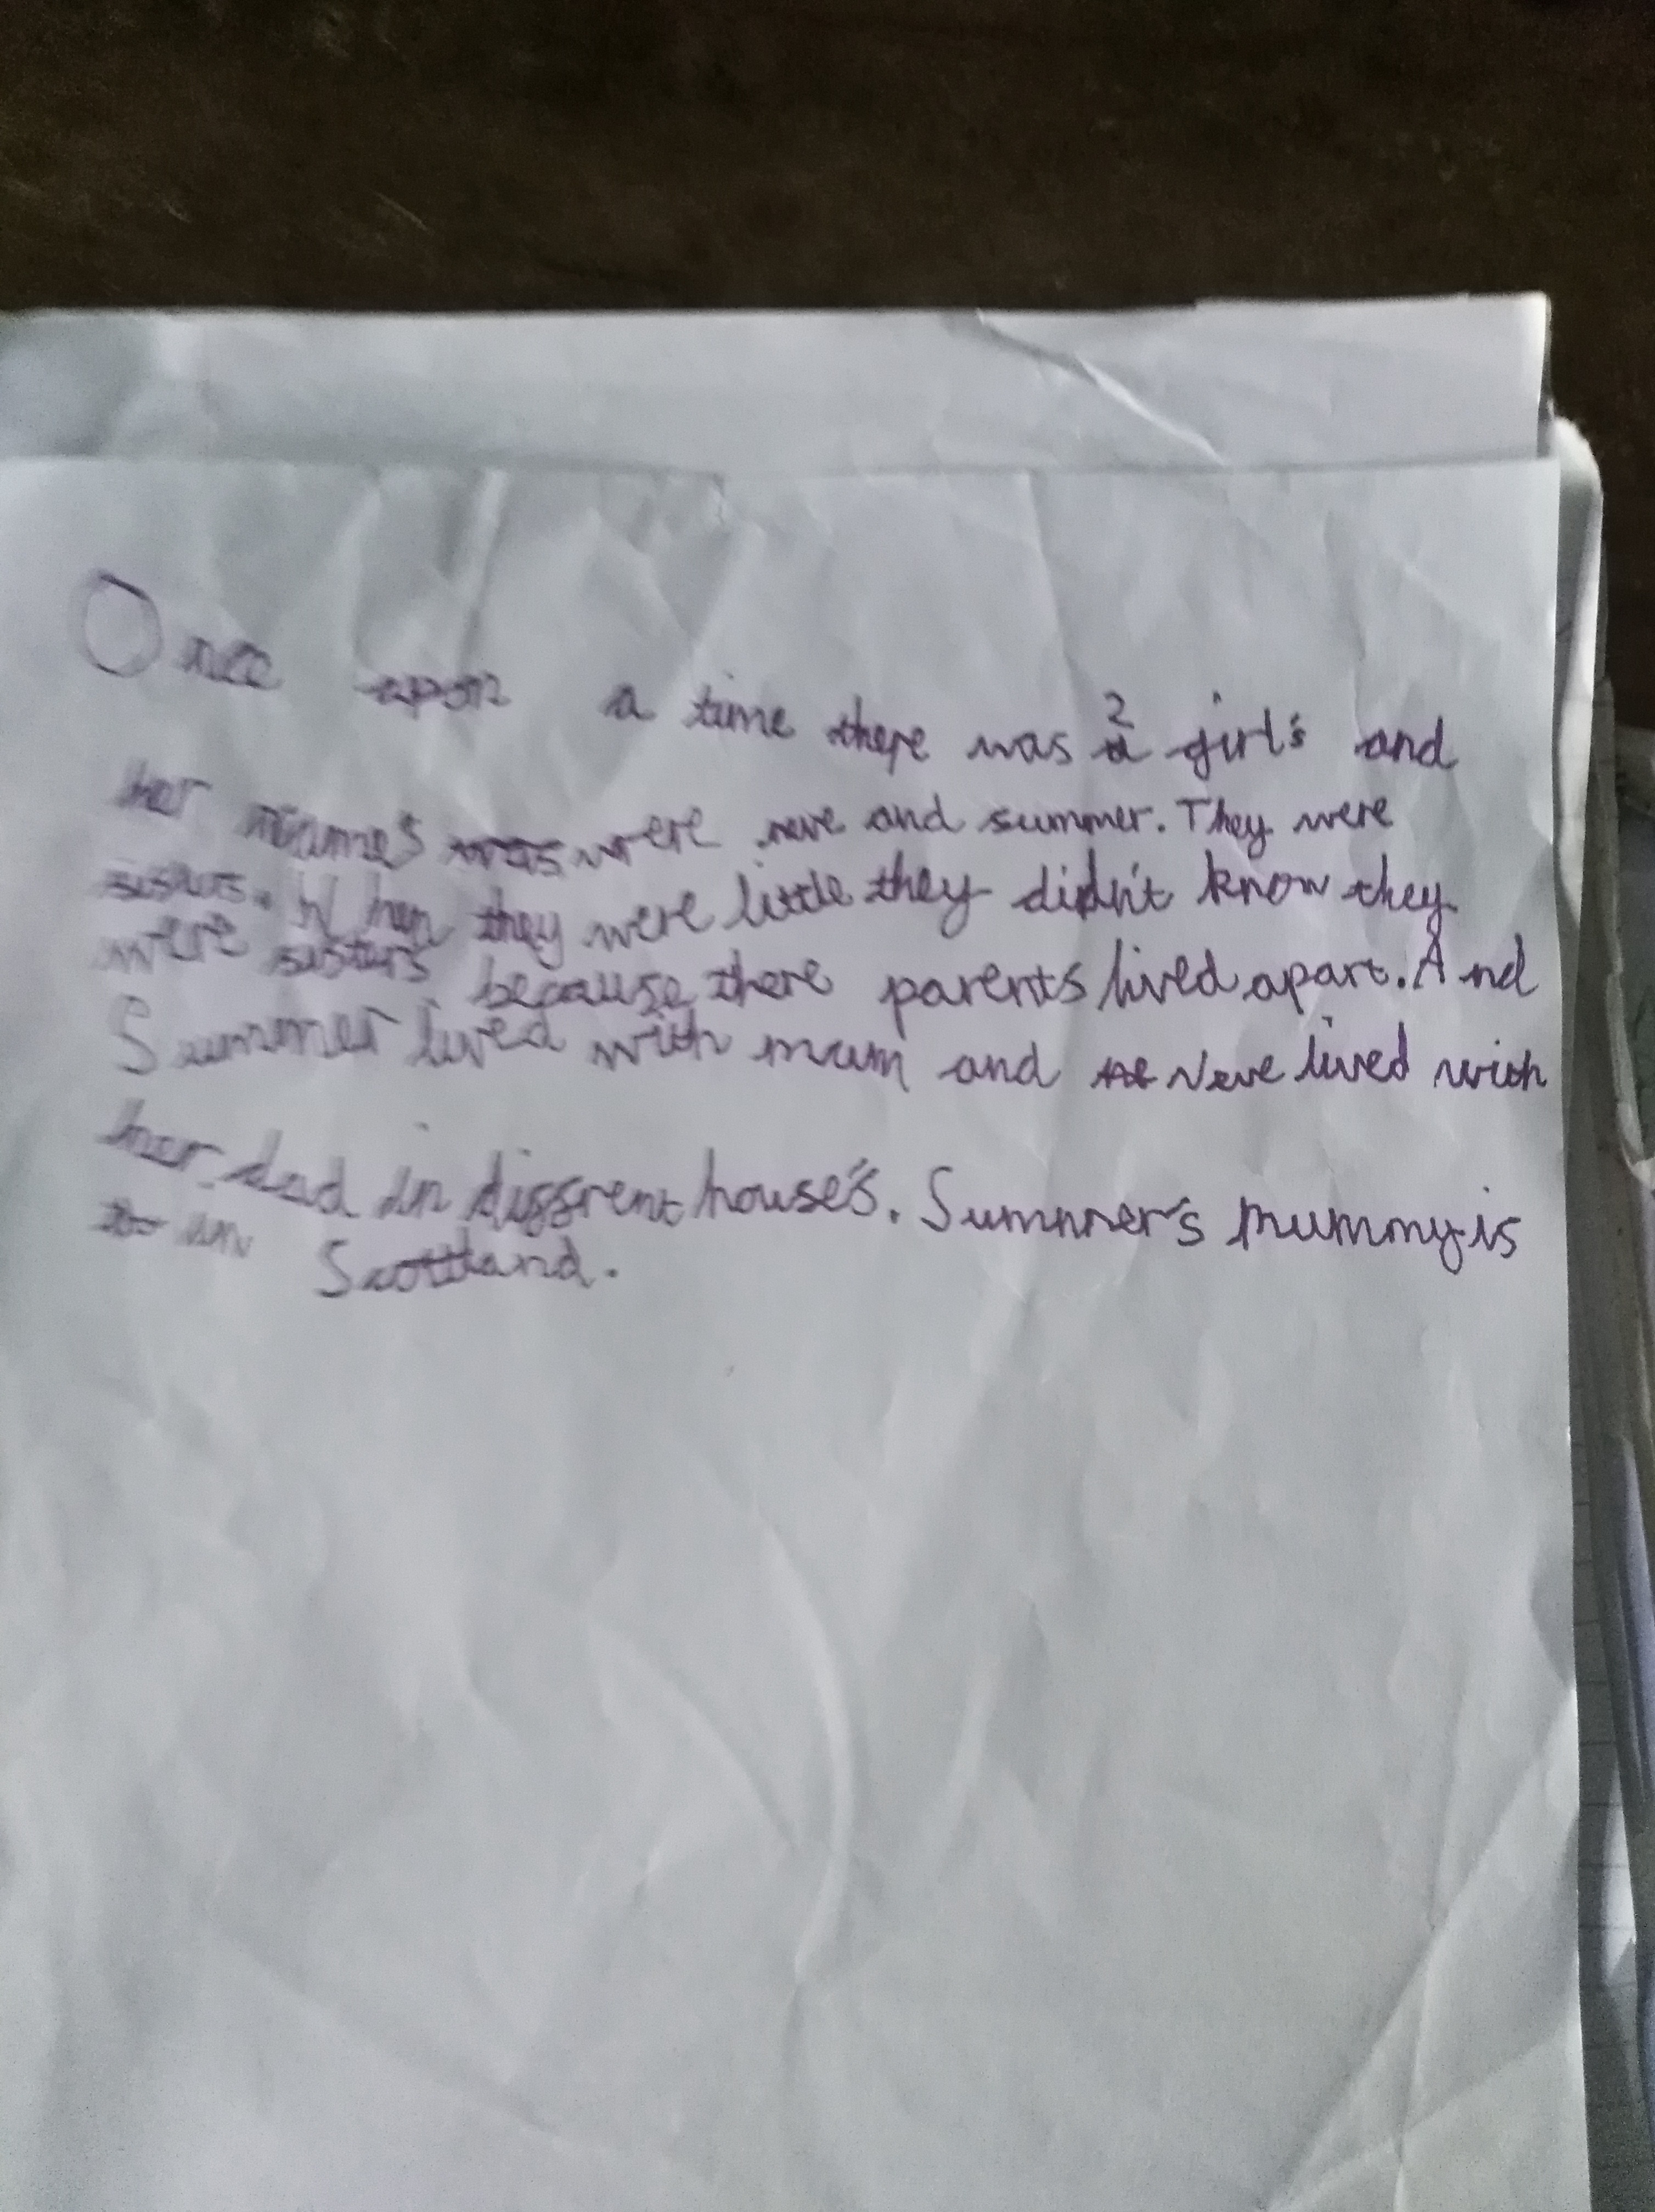 Once upon a time there was 2 girl's and
her name's were neve and summer. They were
sisters. When they were little they didn't know they
were sisters because there parents lived apart. And
Summer lived with mum and Neve lived with
her dad in diffrent house's. Summer's mummy is
in Scottland.